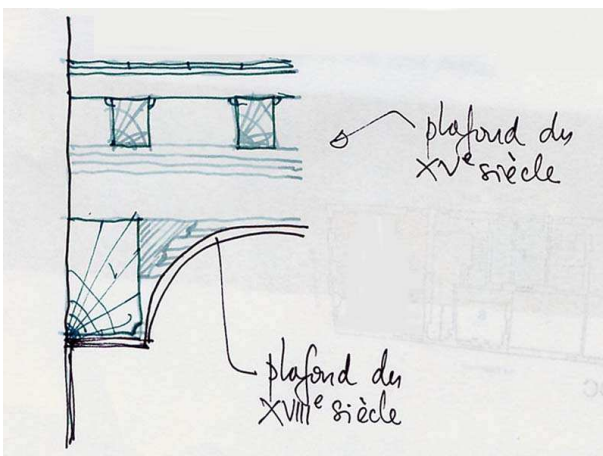 plafond du
XVe siècle
plafond du
XVIIIe siècle